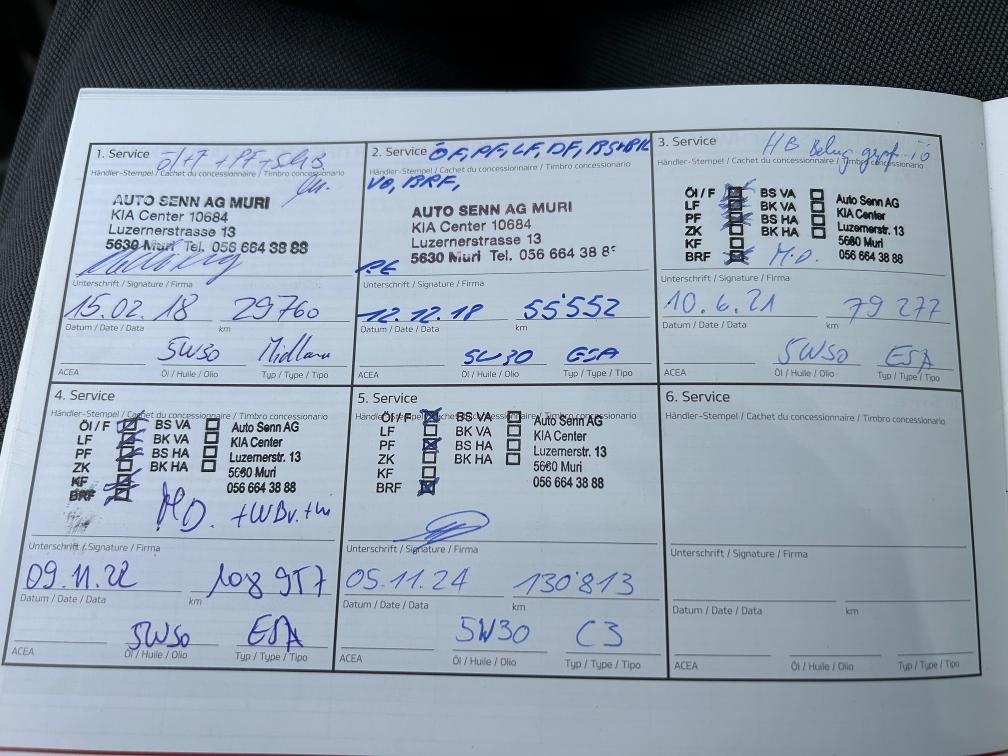 1. Service Öl+F + PF +
Händler-Stempel / Cachet du concessionnaire / Timbro concessionario
AUTO SENN AG MURI
KIA Center 10684
Luzernerstrasse 13
5630 Muri Tel. 056 664 38 88
Unterschrift / Signature / Firma
15.02.18 29760
Datum / Date / Data km
5W30 Midland
ACEA Öl / Huile / Olio Typ / Type / Tipo
2. Service ÖF, PF, LF, DF, BS+BK
Händler-Stempel / Cachet du concessionnaire / Timbro concessionario
VO, BRF,
AUTO SENN AG MURI
KIA Center 10684
Luzernerstrasse 13
5630 Muri Tel. 056 664 38 8
Unterschrift / Signature / Firma
12.12.18 55'552
Datum / Date / Data km
5W30 ESA
ACEA Öl / Huile / Olio Typ / Type / Tipo
3. Service HB
Händler-Stempel / Cachet du concessionnaire / Timbro concessionario
Öl / F BS VA Auto Senn AG
LF BK VA KIA Center
PF BS HA Luzernerstr. 13
ZK BK HA 5630 Muri
KF 056 664 38 88
BRF M.D.
Unterschrift / Signature / Firma
10.6.21 79 277
Datum / Date / Data km
5W30 ESA
ACEA Öl / Huile / Olio Typ / Type / Tipo
4. Service
Händler-Stempel / Cachet du concessionnaire / Timbro concessionario
Öl / F BS VA Auto Senn AG
LF BK VA KIA Center
PF BS HA Luzernerstr. 13
ZK BK HA 5630 Muri
KF 056 664 38 88
BRF M.D.
Unterschrift / Signature / Firma
09.11.22 108 957
Datum / Date / Data km
5W30 ESA
ACEA Öl / Huile / Olio Typ / Type / Tipo
5. Service
Händler-Stempel / Cachet du concessionnaire / Timbro concessionario
Öl / F BS VA Auto Senn AG
LF BK VA KIA Center
PF BS HA Luzernerstr. 13
ZK BK HA 5630 Muri
KF 056 664 38 88
BRF
Unterschrift / Signature / Firma
05.11.24 130'813
Datum / Date / Data km
5W30 C3
ACEA Öl / Huile / Olio Typ / Type / Tipo
6. Service
Händler-Stempel / Cachet du concessionnaire / Timbro concessionario
Unterschrift / Signature / Firma
Datum / Date / Data km
ACEA Öl / Huile / Olio Typ / Type / Tipo